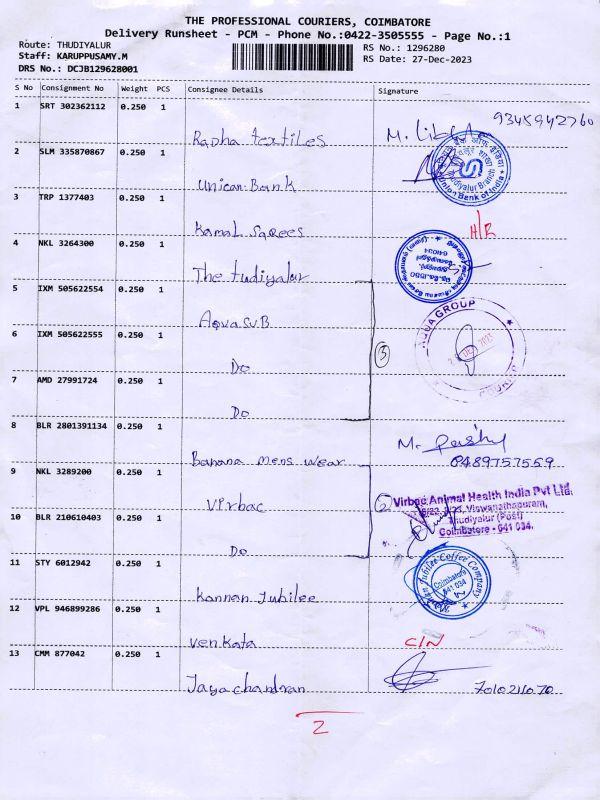 THE PROFESSIONAL COURIERS, COIMBATORE
Delivery Runsheet - PCM - Phone No.:0422-3505555 - Page No.:1
Route: THUDIYALUR
Staff: KARUPPUSAMY.M
DRS No.: DCJB129628001
RS No.: 1296280
RS Date: 27-Dec-2023
S No Consignment No Weight PCS Consignee Details Signature
1 SRT 302362112 0.250 1
Radha textiles M. 9345942760
2 SLM 335870867 0.250 1
Union Bank
Thudiyalur Branch
Union Bank of India
3 TRP 1377403 0.250 1
Kamal Sarees H/R
4 NKL 3264300 0.250 1
The tudiyalur
641034
5 IXM 505622554 0.250 1
Aqua SUB
AQUA GROUP
6 IXM 505622555 0.250 1
Do
3
7 AMD 27991724 0.250 1
Do
8 BLR 2801391134 0.250 1
Banana mens wear
M.
8489757559
9 NKL 3289200 0.250 1
Virbac
2
Virbac Animal Health India Pvt Ltd.
Viswanathapuram,
Thudiyalur (Post)
Coimbatore - 641 034.
10 BLR 210610403 0.250 1
Do
11 STY 6012942 0.250 1
Kannan Jubilee
Jubilee Coffee Company
Coimbatore
641 034
12 VPL 946899286 0.250 1
Venkata C/N
13 CMM 877042 0.250 1
Jayachandran
2